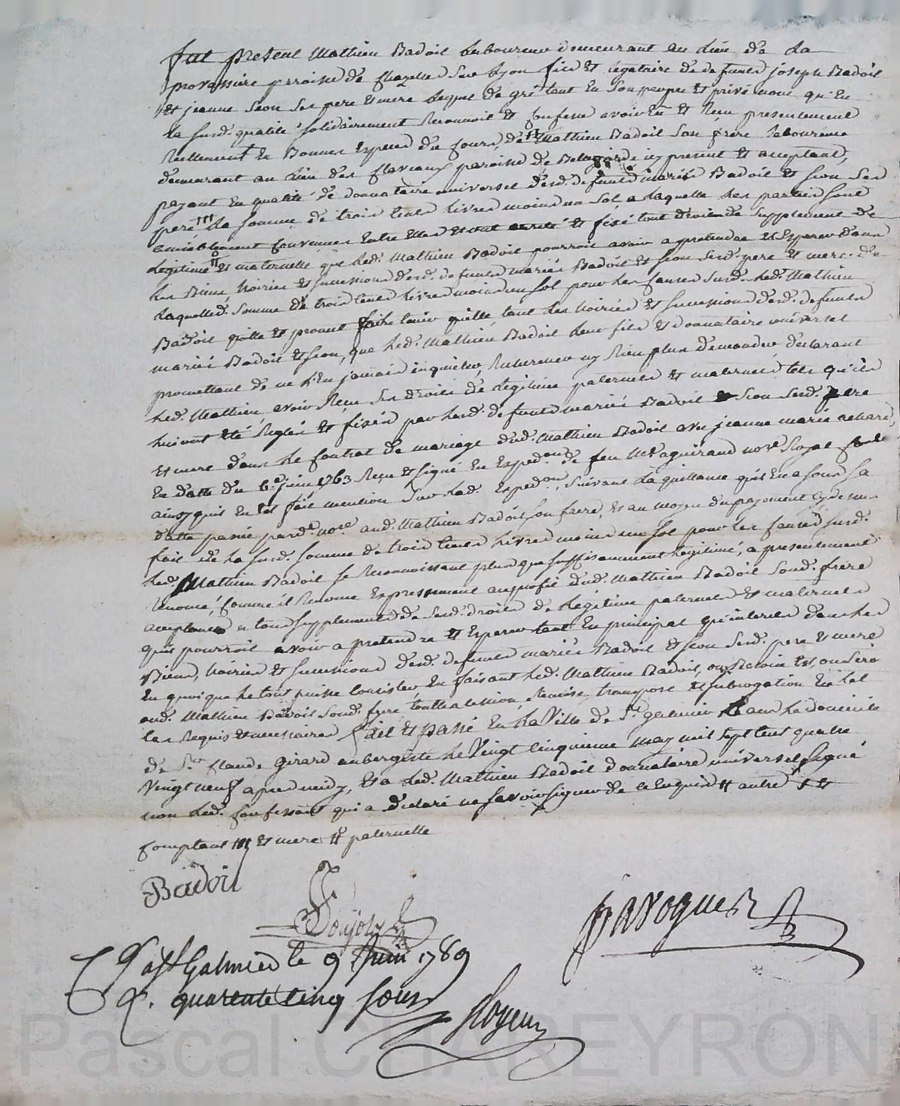 Fut present Mathieu Badoil laboureur demeurant au lieu de la
provossiere parroisse de Mazelle sur Lyon fils et légataire de defunts joseph Badoil
et jeanne Seon ses pere et mere lequel de gré tant en son propre et privé nom qu'en
la susd. qualité solidairement Reconnoit et confesse avoir eu et Reçu presentement
Reellement en Bonnes Especes de cours, de Mathieu Badoil son frere Laboureur
demeurant au lieu des flaveaux paroisse de Bellegarde icy present et acceptant,
payant en qualité de donnataire universel desd. defunts mariés Badoil et Seon ses
pere la somme de trois cents livres moins un sol a laquelle les parties sont
amiablement convenues entre elles et ont arrêté et fixé tout droit de supplement de
Légitime et maternelle que led. Mathieu Badoil pourroit avoir a pretendre et Esperer dans
les Biens, hoiries et successions desd. defunts mariés Badoil et Seon sesd. pere et mere. de
Laquelle d. somme de trois cents livres moins un sol pour les causes susd. led. Mathieu
Badoil quitte et promet faire tenir quitte tant les hoiries et successions desd. defunts
mariés Badoil et Seon, que led. Mathieu Badoil leur fils et donnataire universel
promettant de ne l'en jamais inquieter Rechercher ny Rien plus demander declarant
led. Mathieu avoir Reçu ses droits de Légitime paternels et maternels tels qu'ils
luy ont été Reglés et fixés par lesd. defunts mariés Badoil et Seon sesd. pere
et mere dans le contrat de mariage dud. Mathieu Badoil avec jeanne marie
En datte du 6e juin 1763 Reçu et signé En Expedon. de feu Me Vaguirand nore. Royal
ainsy qu'il en est fait mention sur lad. Expedon., suivant la quittance qu'il en a
datte passée pard. nore. aud. Mathieu Badoil son frere, et au moyen du payement cy dessus
fait de la susd. somme de trois cents livres moins un sol pour les causes susd.
led. Mathieu Badoil se Reconnoissant plus que suffisamment légitimé, a presentement
Renoncé, comme il Renonce Expressement au profit dud. Mathieu Badoil sond. frere
acceptant a tous supplements de sesd. droits de Légitime paternels et maternels
qu'il pourroit avoir a pretendre et Esperer tant En principal qu'interets dans les
Biens, hoiries et successions desd. defunts mariés Badoil et Seon sesd. pere et mere
En quoi que le tout puisse consister, En faisant led. Mathieu Badoil,
aud. Mathieu Badoil sond. frere toutte cession, Remise, transport et subrogation En tel
cas Requis et necessaires fait et passé En la Ville de St. galmier dans le domicile
de Sr. Claude Girard aubergiste le Vingt cinquieme May mil sept cent quatre
Vingt neuf apres midy, Et a led. Mathieu Badoil donnataire universel signé
non led. confessant qui a declaré ne savoir signer de ce Enquis
comptant et mere paternelle
Badoil
Poujol
Pavoguer
Cé a St Galmier le 9 Juin 1789
R. quarente cinq sous
Royer
Pascal CHAREYRON